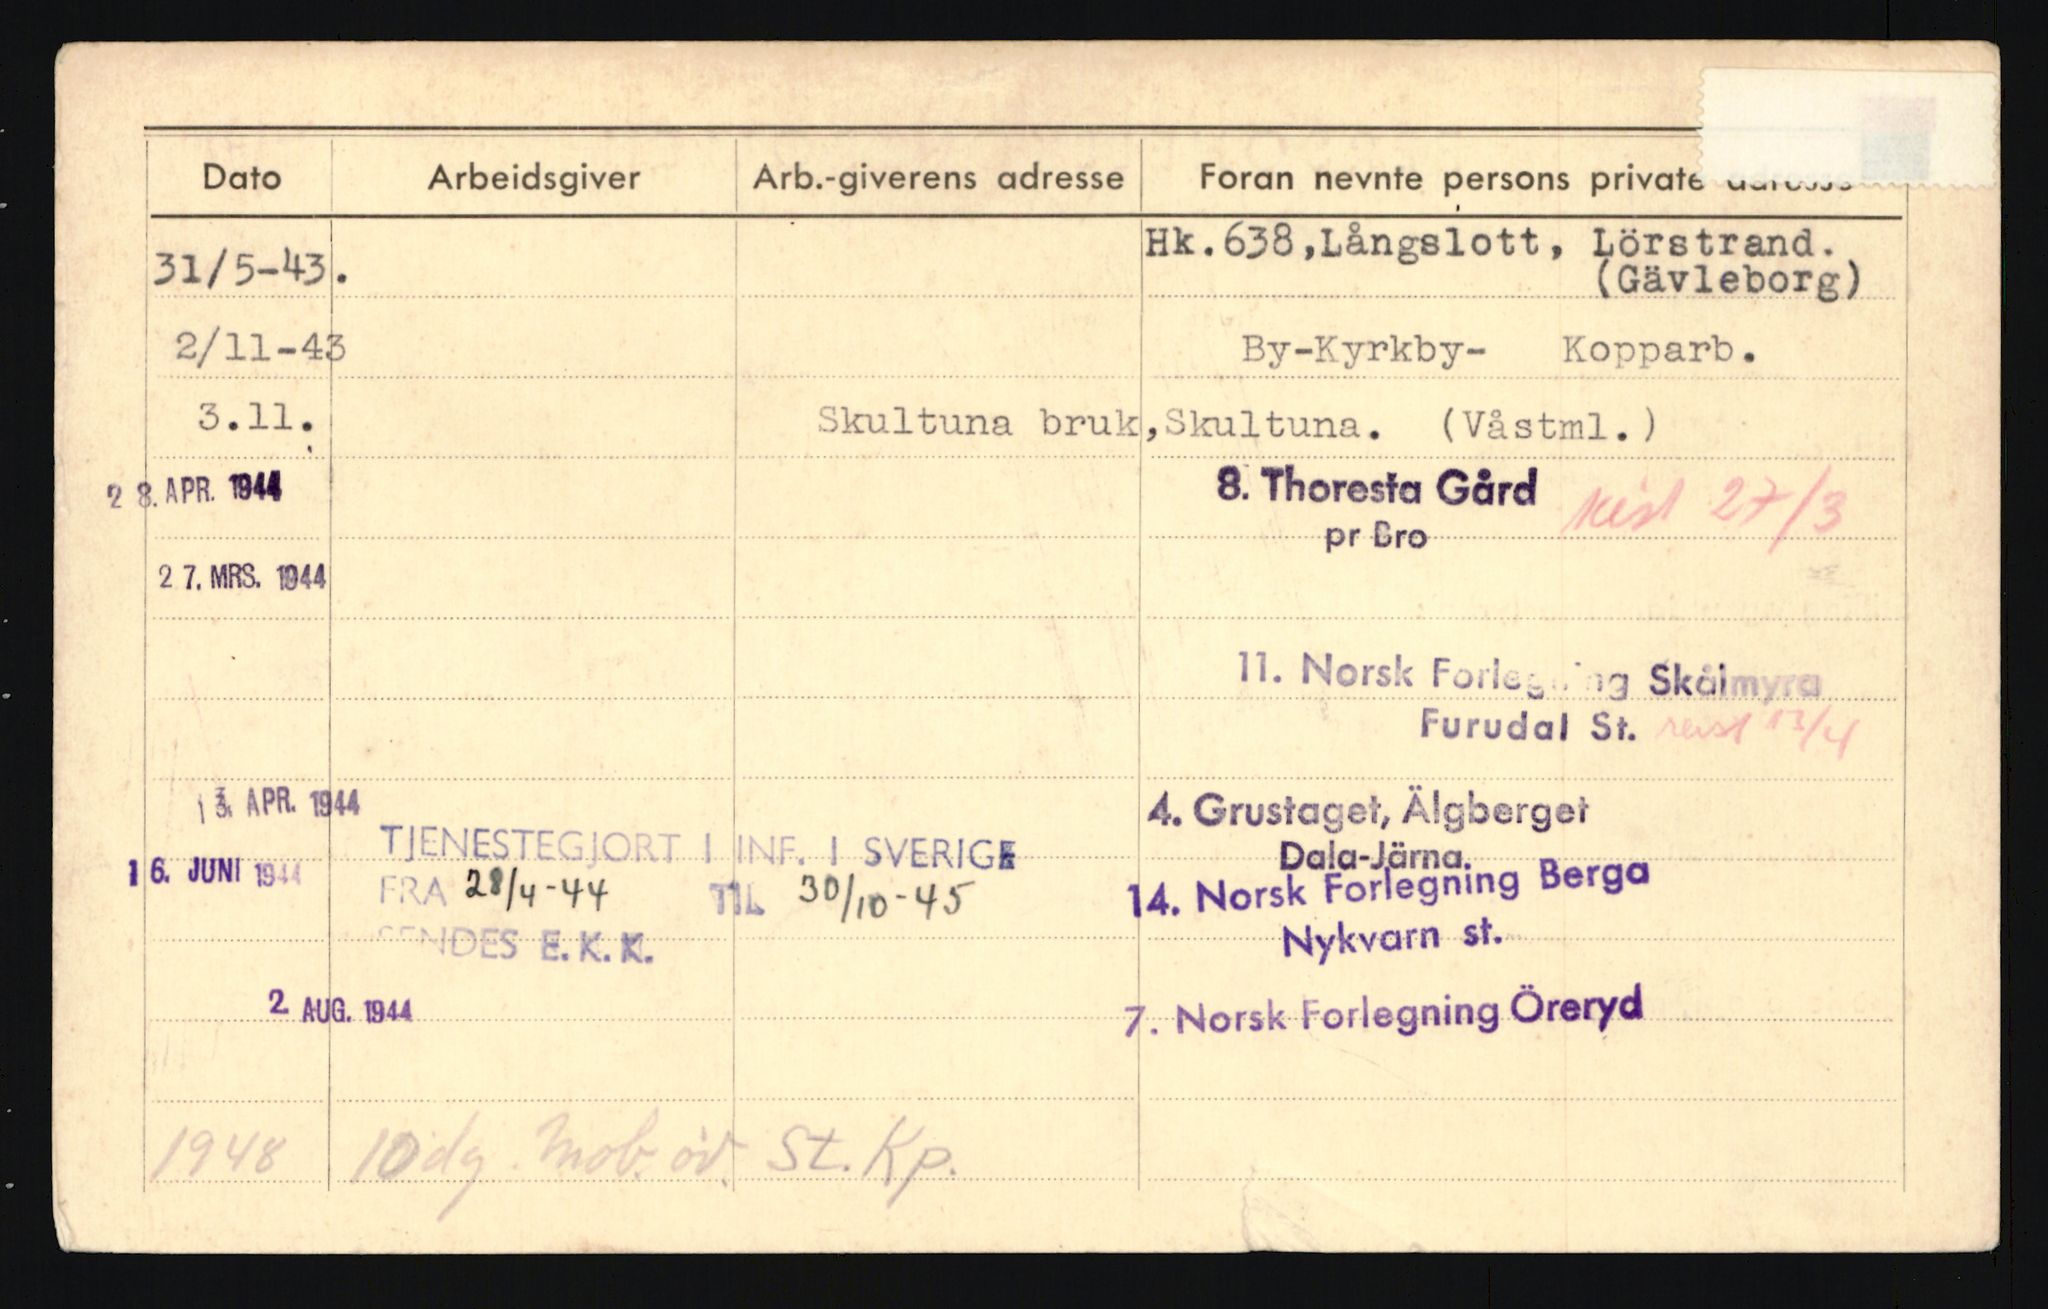 Dato Arbeidsgiver Arb.-giverens adresse Foran nevnte persons private adresse
31/5-43. Hk.638,Långslott, Lörstrand.
(Gävleborg)
2/11-43 By-Kyrkby- Kopparb.
3.11. Skultuna bruk,Skultuna. (Våstml.)
28. APR. 1944 8. Thoresta Gård reist 27/3
pr Bro
27. MRS. 1944
11. Norsk Forlegning Skålmyra
Furudal St. reist 13/4
13. APR. 1944 4. Grustaget, Älgberget
TJENESTEGJORT I INF. I SVERIGE Dala-Järna.
16. JUNI 1944 FRA 28/4-44 TIL 30/10-45 14. Norsk Forlegning Berga
SENDES E. K. K. Nykvarn st.
2 AUG. 1944 7. Norsk Forlegning Öreryd
1948 10 dg. Mob. öv. St. Kp.